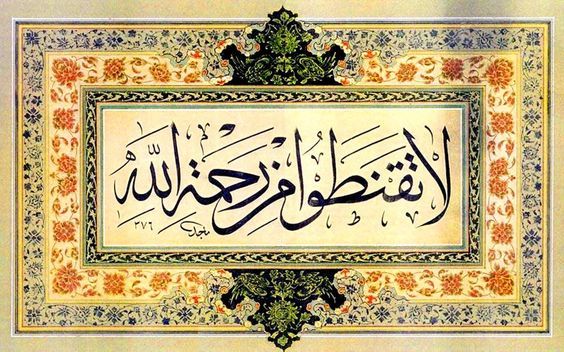 لا تقنطوا من رحمة الله
ماجد ١٣٧٦